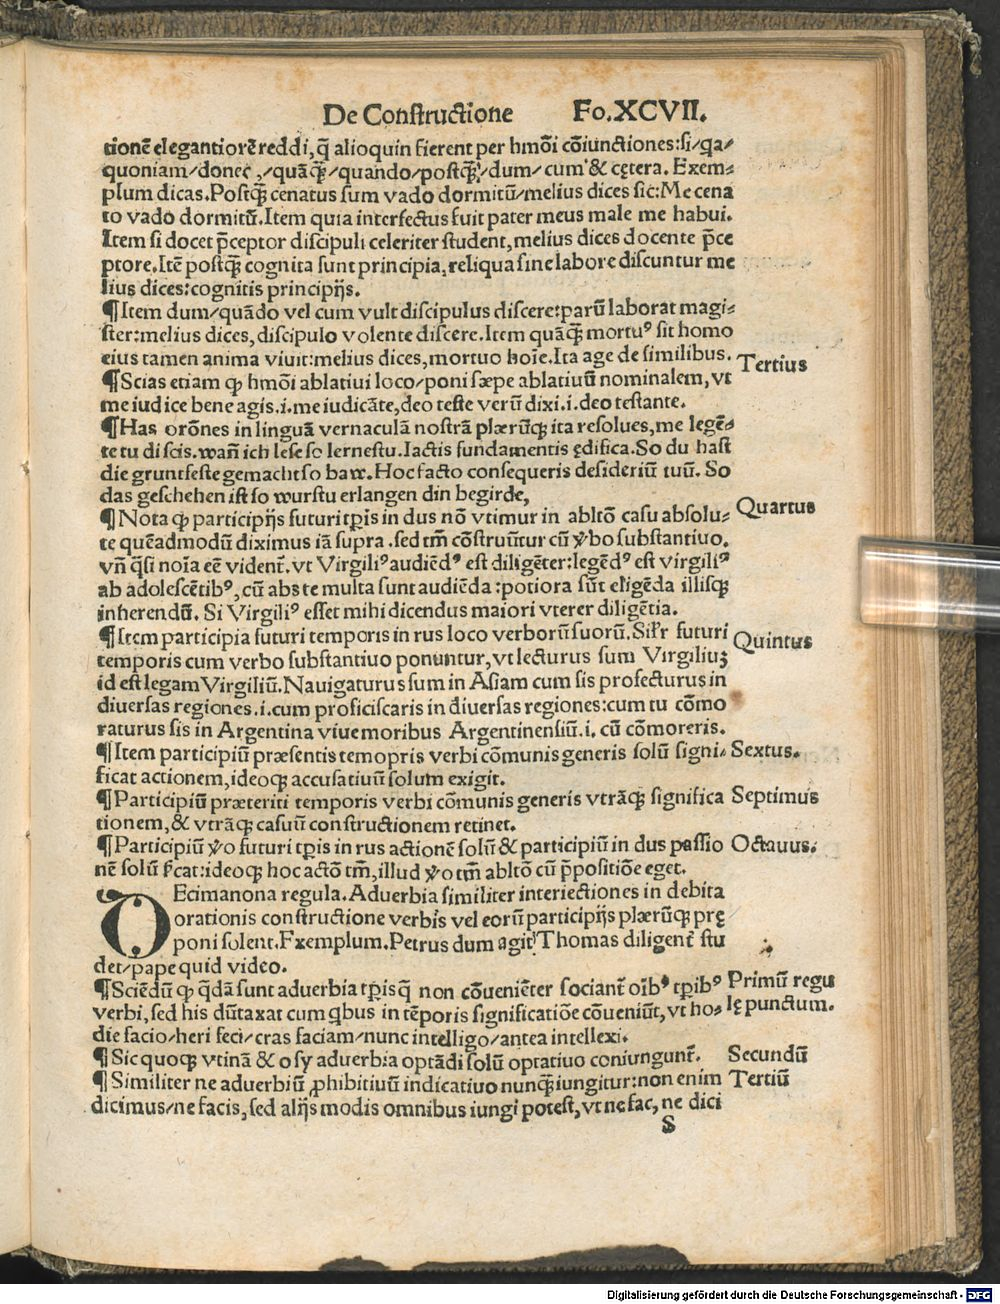 De Constructione Fo.XCVII.
tionē elegantiorē reddi, q̄ alioquin fierent per hmōi cōiunctiones: si/qa/
quoniam/donec,/quāq̄/quando/postq̄/dum/cum & cętera. Exem⸗
plum dicas. Postq̄ cenatus sum vado dormitū/melius dices sic: Me cena
to vado dormitū. Item quia interfectus fuit pater meus male me habui.
Item si docet p̄ceptor discipuli celeriter student, melius dices docente p̄ce
ptore. Itē postq̄ cognita sunt principia, reliqua sine labore discuntur me
lius dices: cognitis principijs.
¶ Item dum/quādo vel cum vult discipulus discere: parū laborat magi⸗
ster: melius dices, discipulo volente discere. Item quāq̄ mortuꝰ sit homo
eius tamen anima viuit: melius dices, mortuo hoīe. Ita age de similibus.
Tertius
¶ Scias etiam ꝙ hmōi ablatiui loco/poni sæpe ablatiuū nominalem, vt
me iudice bene agis .i. me iudicāte, deo teste verū dixi .i. deo testante.
¶ Has orōnes in linguā vernaculā nostrā plærūꝙ ita resolues, me legē⸗
te tu discis. wañ ich lese so lernestu. Iactis fundamentis ędifica. So du hast
die gruntfeste gemacht so baw. Hoc facto consequeris desideriū tuū. So
das geschehen ist so wurstu erlangen din begirde,
Quartus
¶ Nota ꝙ participijs futuri tp̄is in dus nō vtimur in abltō casu absolu⸗
te quēadmodū diximus iā supra. sed tm̄ cōstruūtur cū v̄bo substantiuo.
vñ q̄si noīa eē vident̄. vt Virgiliꝰ audiēdꝰ est diligēter: legēdꝰ est virgiliꝰ
ab adolescētibꝰ, cū abs te multa sunt audiēda: potiora sūt eligēda illisꝙ
inherendū. Si Virgiliꝰ esset mihi dicendus maiori vterer diligētia.
Quintus
¶ Item participia futuri temporis in rus loco verborū suorū. Sil̄r futuri
temporis cum verbo substantiuo ponuntur, vt lecturus sum Virgiliuꝫ
id est legam Virgiliū. Nauigaturus sum in Asiam cum sis profecturus in
diuersas regiones .i. cum proficiscaris in diuersas regiones: cum tu cōmo
raturus sis in Argentina viue moribus Argentinensiū .i. cū cōmoreris.
Sextus.
¶ Item participiū præsentis temopris verbi cōmunis generis solū signi⸗
ficat actionem, ideoꝙ accusatiuū solum exigit.
Septimus
¶ Participiū præteriti temporis verbi cōmunis generis vtrāꝙ significa
tionem, & vtrāꝙ casuū constructionem retinet.
Octauus.
¶ Participiū v̄o futuri tp̄is in rus actionē solū & participiū in dus passio
nē solū p̄cat: ideoꝙ hoc actō tm̄, illud v̄o tm̄ abltō cū p̄positiōe eget.
DEcimanona regula. Aduerbia similiter interiectiones in debita
orationis constructione verbis vel eorū participijs plærūꝙ prę
poni solent. Exemplum. Petrus dum agit Thomas diligent̄ stu
det/pape quid video.
Primū regu
lę punctum.
¶ Sciēdū ꝙ q̄dā sunt aduerbia tp̄is q̄ non cōueniēter sociant̄ oībꝰ tp̄ibꝰ
verbi, sed his dūtaxat cum q̄bus in tēporis significatiōe cōueniūt, vt ho⸗
die facio/heri feci/cras faciam/nunc intelligo/antea intellexi.
Secundū
¶ Sic quoꝙ vtinā & o sy aduerbia optādi solū optatiuo coniungunt̄.
Tertiū
¶ Similiter ne aduerbiū ꝓhibitiuū indicatiuo nunq̄ iungitur: non enim
dicimus/ne facis, sed alijs modis omnibus iungi potest, vt ne fac, ne dici
S
Digitalisierung gefördert durch die Deutsche Forschungsgemeinschaft - DFG